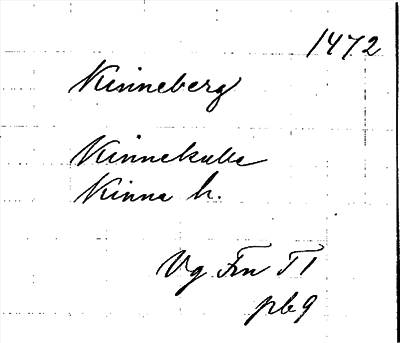 1472
Kinneberg
Kinnekulle
Kinna h.
Vg Frn T1
pb9